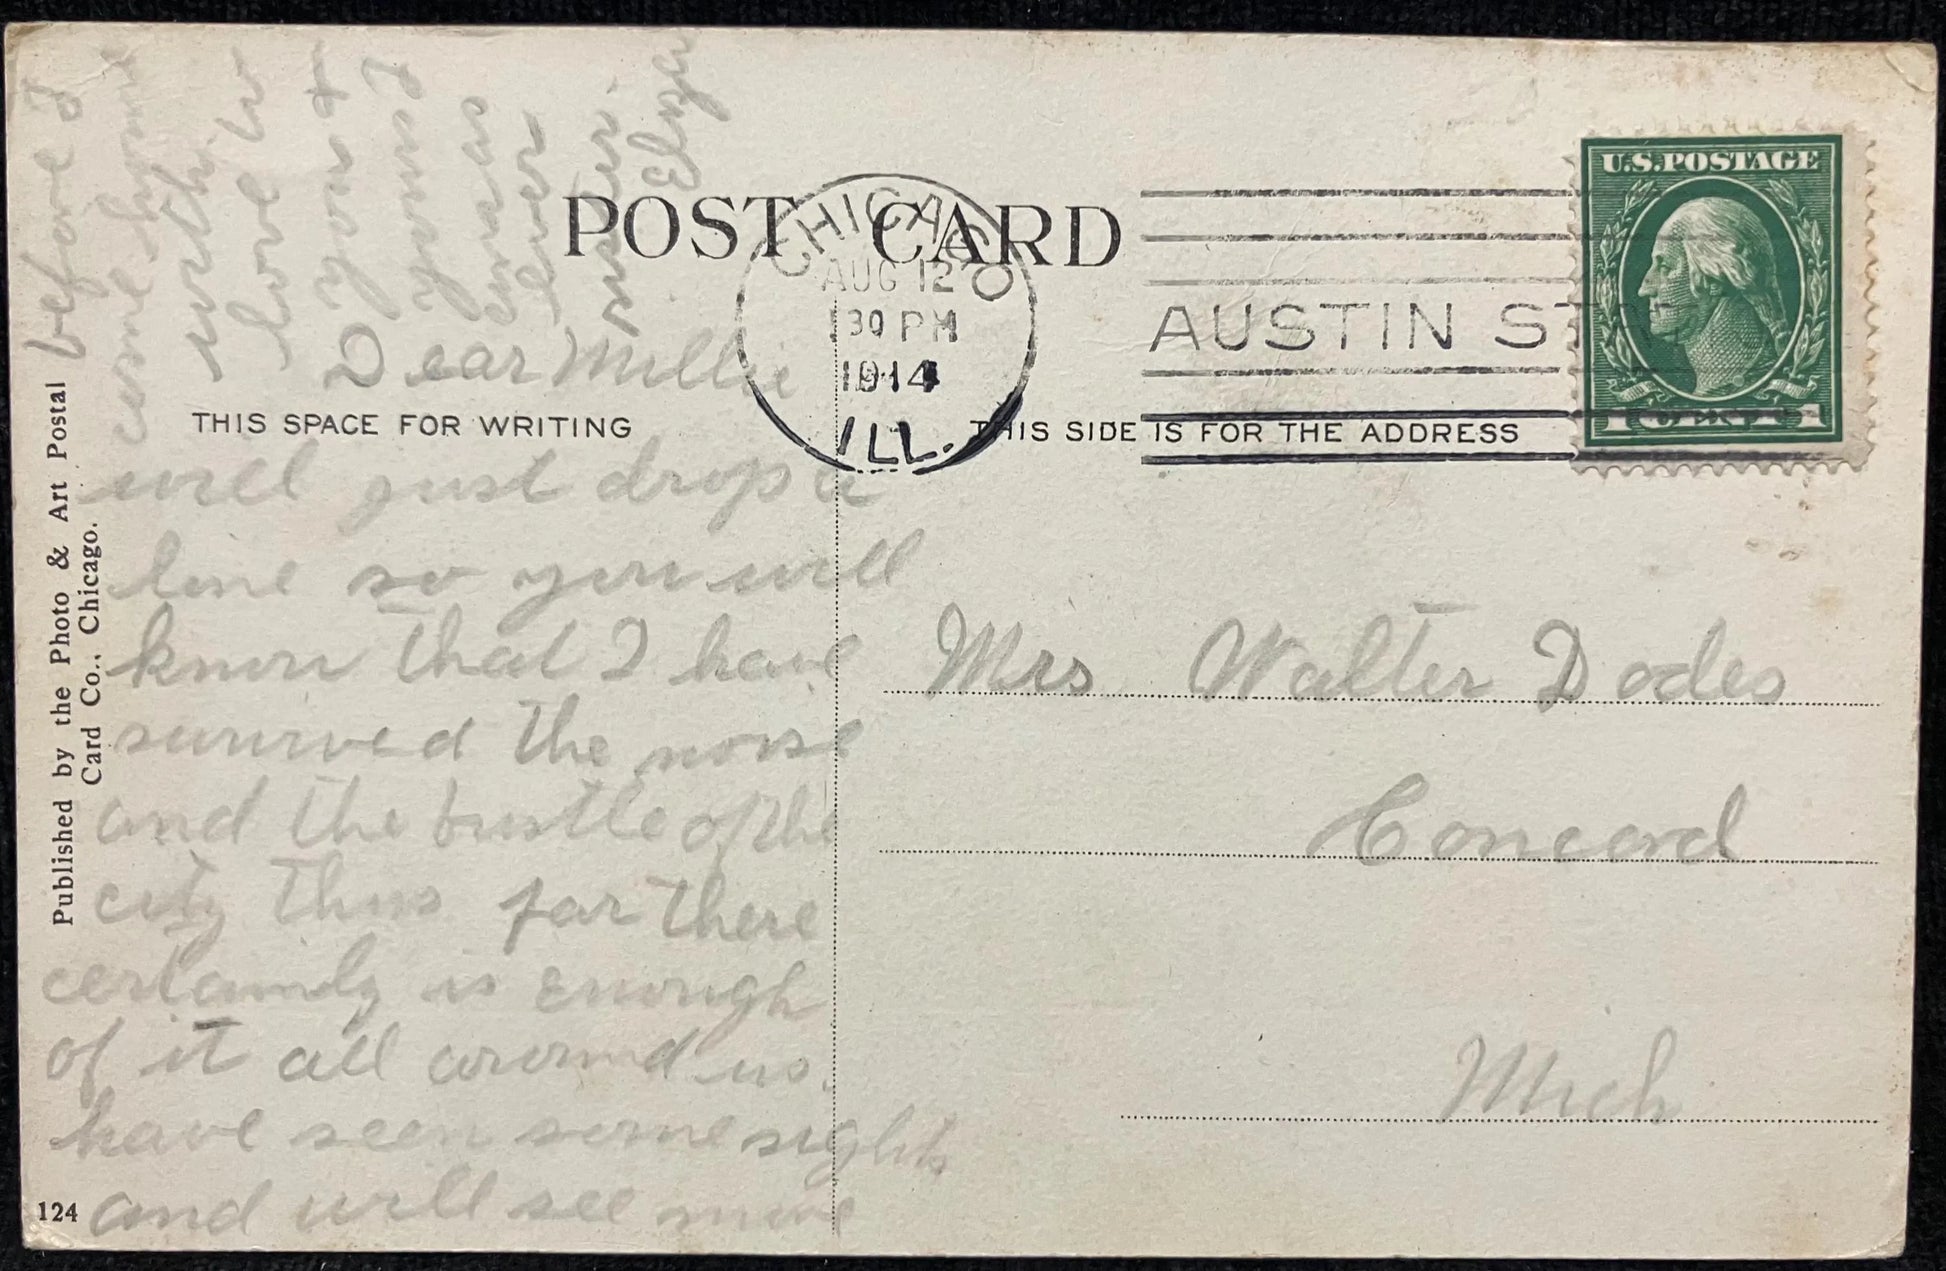 POST CARD
CHICAGO
AUG 12
130 PM
1914
ILL.
AUSTIN ST
U.S. POSTAGE
THIS SPACE FOR WRITING
THIS SIDE IS FOR THE ADDRESS
Published by the Photo & Art Postal
Card Co., Chicago.
124
Dear Millie
will just drop a
line so you will
know that I have
survived the noise
and the bustle of the
city thus far there
certainly is enough
of it all around us.
have seen some sights
and will see more
before I
come home
with
love to
you &
yours I
am as
ever
sister
Eliza
Mrs Walter Dodes
Concord
Mich